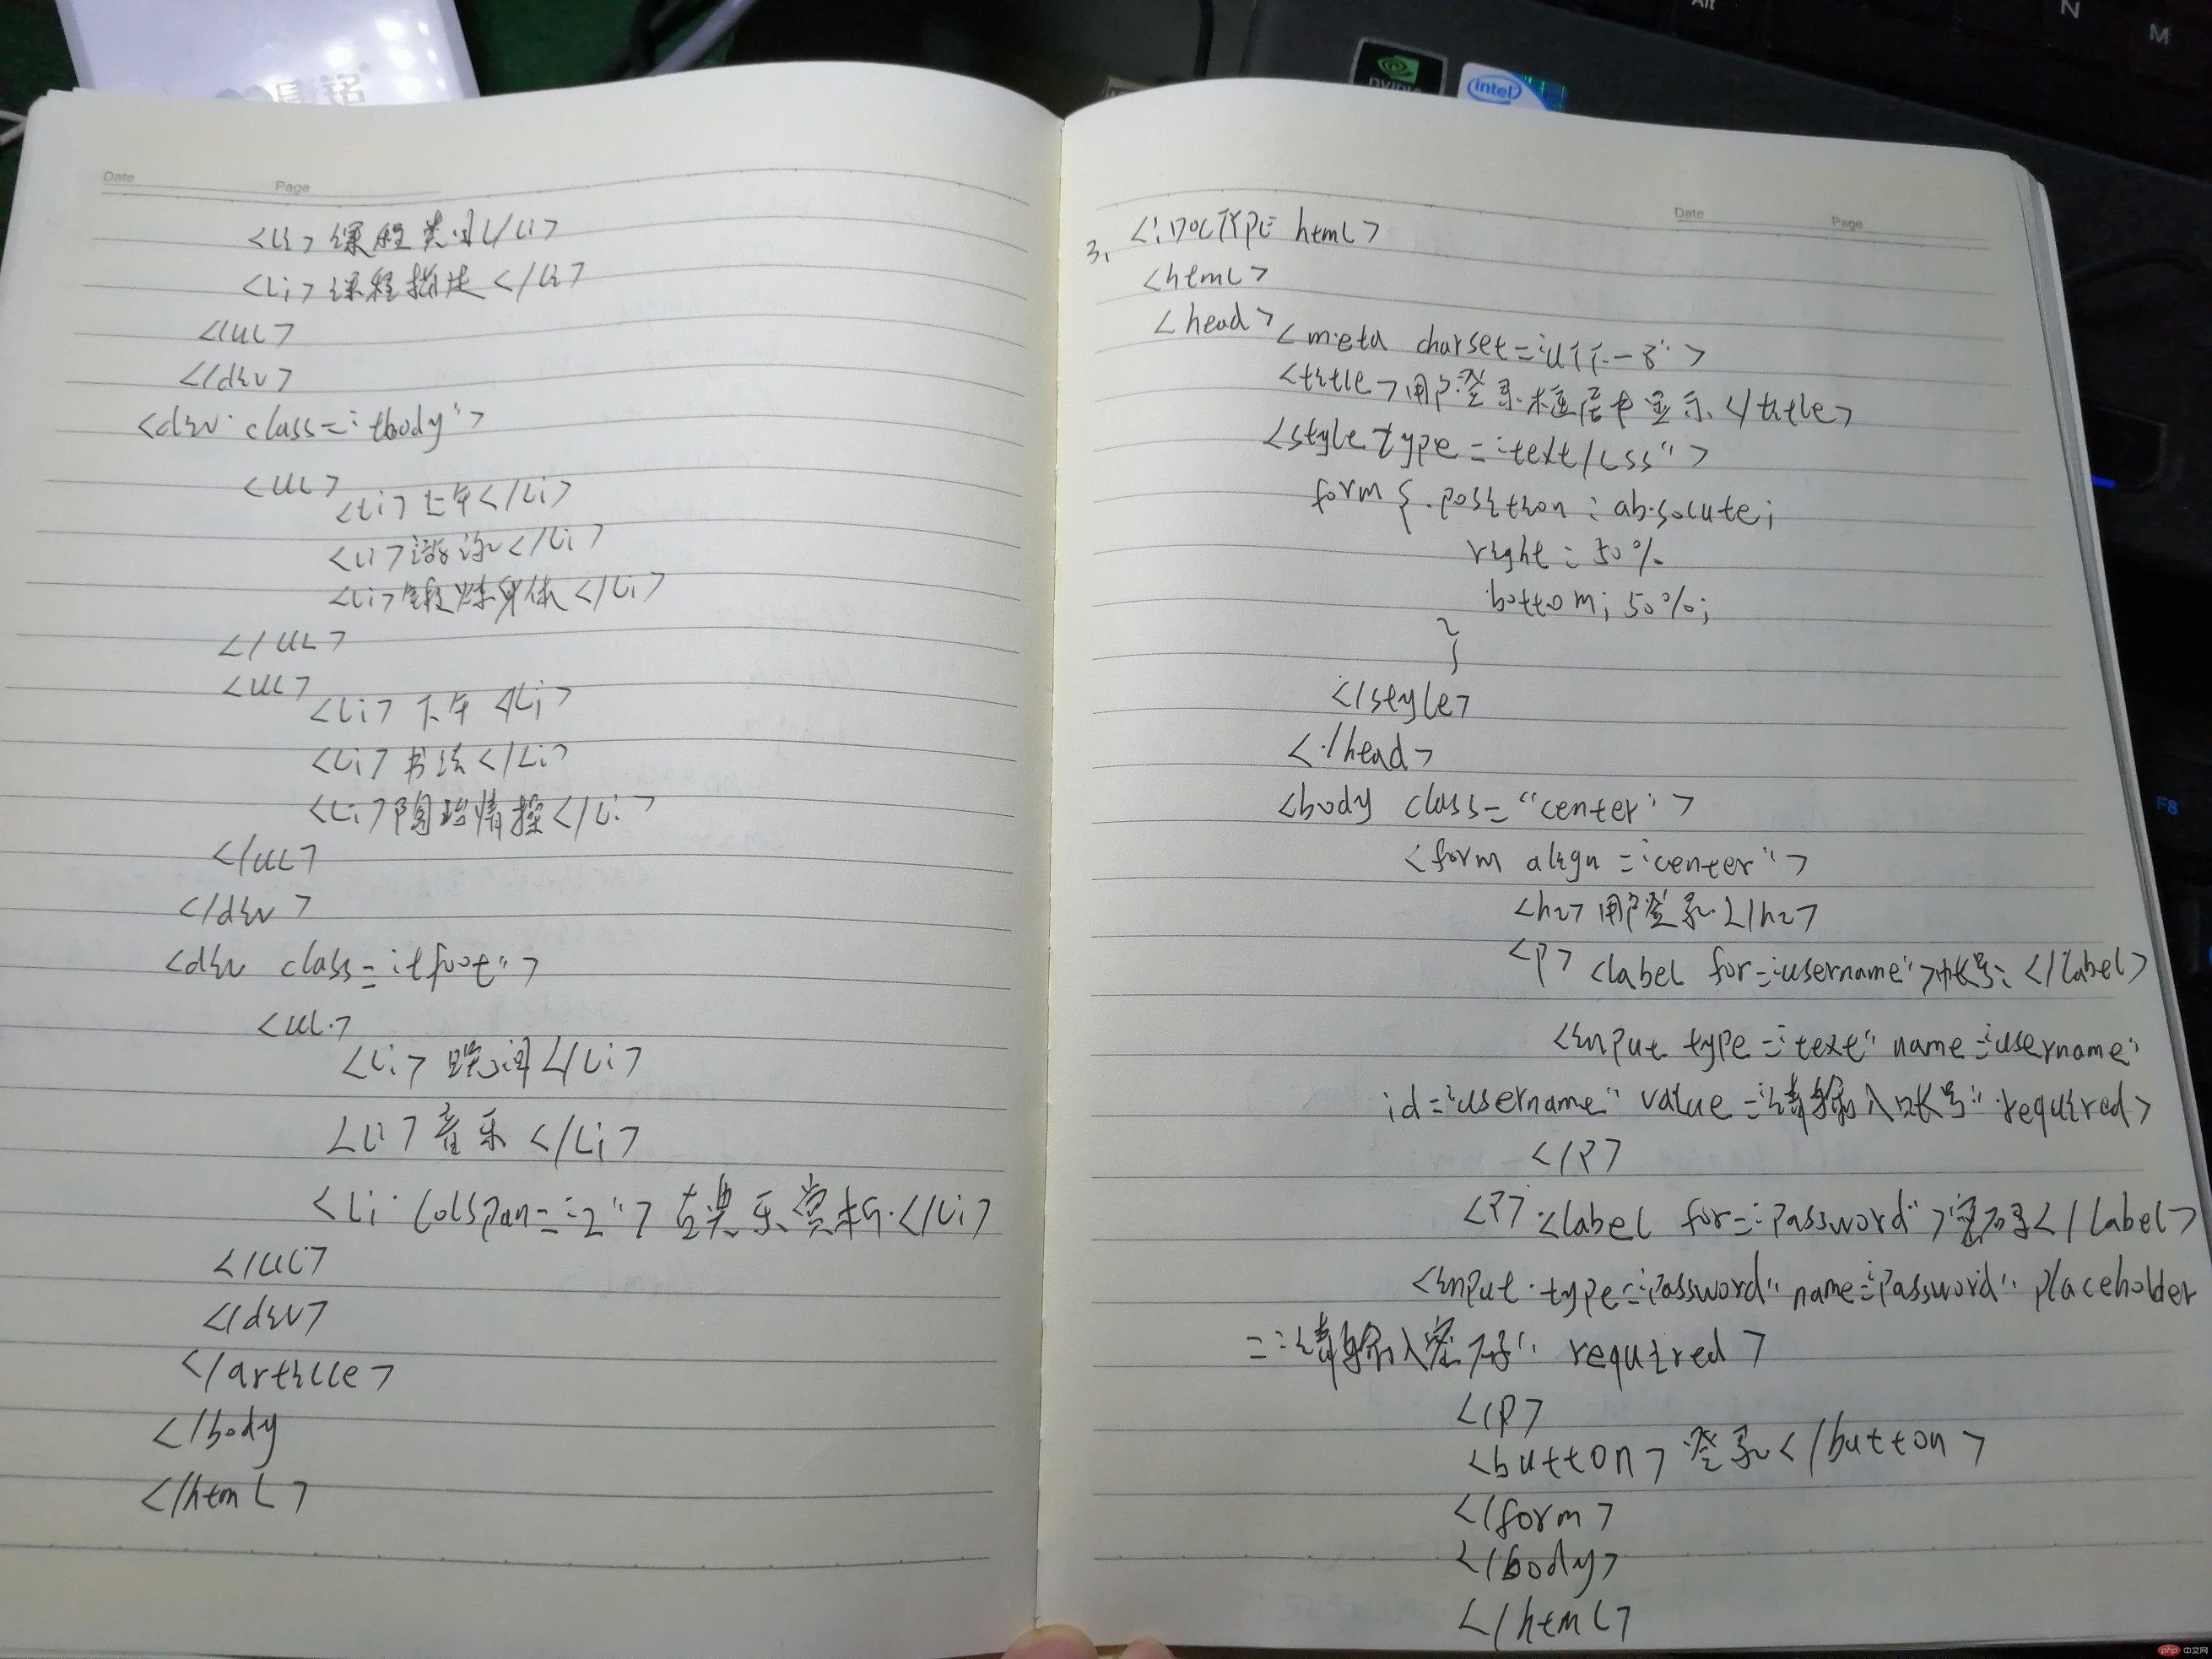 Date Page
<li>课程类别</li>
<li>课程描述</li>
</ul>
</div>
<div class="tbody">
<ul>
<li>上午</li>
<li>锻炼身体</li>
</ul>
<ul>
<li>下午</li>
<li>书法</li>
<li>陶冶情操</li>
</ul>
</div>
<div class="tfoot">
<ul>
<li>晚间</li>
<li>音乐</li>
<li colspan="2">古典乐赏析</li>
</ul>
</div>
</article>
</body
</html>
Date Page
3、<!DOCTYPE html>
<html>
<head>
<meta charset="utf-8">
<title>用户登录框居中显示</title>
<style type="text/css">
form { position: absolute;
right: 50%
bottom; 50%;
}
</style>
</head>
<body class="center">
<form align="center">
<h2>用户登录</h2>
<p> <label for="username">帐号:</label>
<input type="text" name="username"
id="username" value="请输入账号" required>
</p>
<p> <label for="password">密码</label>
<input type="password" name="password" placeholder
="请输入密码" required>
</p>
<button>登录</button>
</form>
</body>
</html>
NVIDIA
intel
Alt
N
M
F8
铭
php 中文网